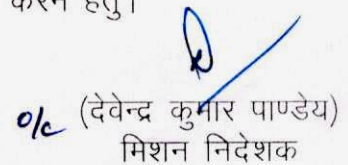 करने हेतु।
o/c (देवेन्द्र कुमार पाण्डेय)
मिशन निदेशक